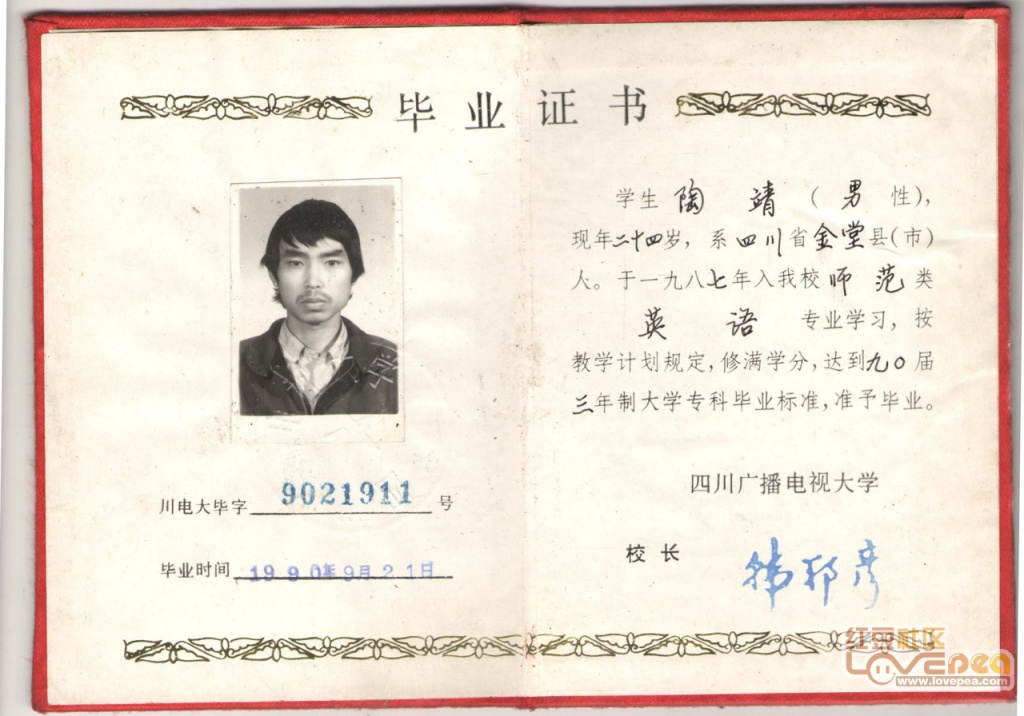 毕业证书
学生陶靖(男性),
现年二十四岁,系四川省金堂县(市)
人。于一九八七年入我校师范类
英语专业学习,按
教学计划规定,修满学分,达到九〇届
三年制大学专科毕业标准,准予毕业。
四川广播电视大学
校长
韩邦彦
川电大毕字9021911号
毕业时间1990年9月21日
学
红豆社区
Lovepea
www.lovepea.com